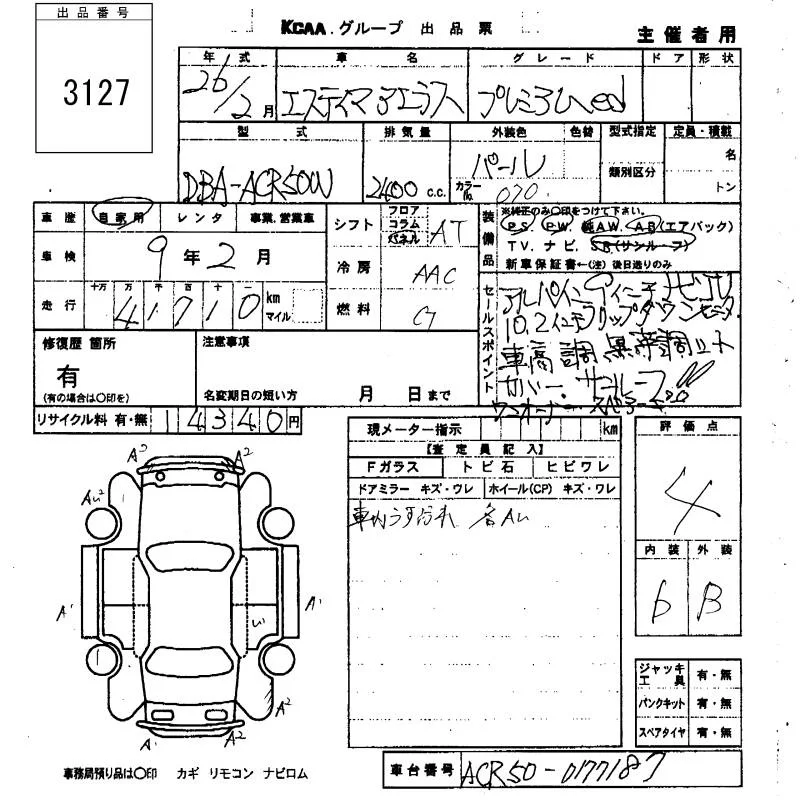 出品番号
3127
KCAA.グループ 出品票
主催者用
年式 車名 グレード ドア 形状
26/2月 エスティマ アエラス プレミアム ed
型式 排気量 外装色 色替 型式指定 定員・積載
DBA-ACR50W 2400c.c. パール カラーNo. 070 類別区分 名 トン
車歴 自家用 レンタ 事業.営業車
車検 9年2月
走行 十万 万 千 百 十 一 41710 km マイル
シフト フロア コラム パネル AT
冷房 AAC
燃料 G
装備品 ※純正のみ〇印をつけて下さい。
PS, PW, 純AW, AB(エアバック)
TV, ナビ, SR(サンルーフ)
新車保証書←(注)後日送りのみ
セールスポイント
10.2インチフリップダウンモニタ
車高調
カバー.
ワンオーナー
修復歴 箇所
有
(有の場合は〇印を)
注意事項
名変期日の短い方 月 日まで
リサイクル料 有・無 14340円
現メーター指示 km
【査定員記入】
Fガラス トビ石 ヒビワレ
ドアミラー キズ・ワレ ホイール(CP) キズ・ワレ
車内うすよごれ 各AU
評価点
4
内装 外装
6 B
A2 A2
AU2
A1 A1
A2
A1 A2
ジャッキ工具 有・無
パンクキット 有・無
スペアタイヤ 有・無
事務局預り品は〇印 カギ リモコン ナビロム
車台番号 ACR50-0177187